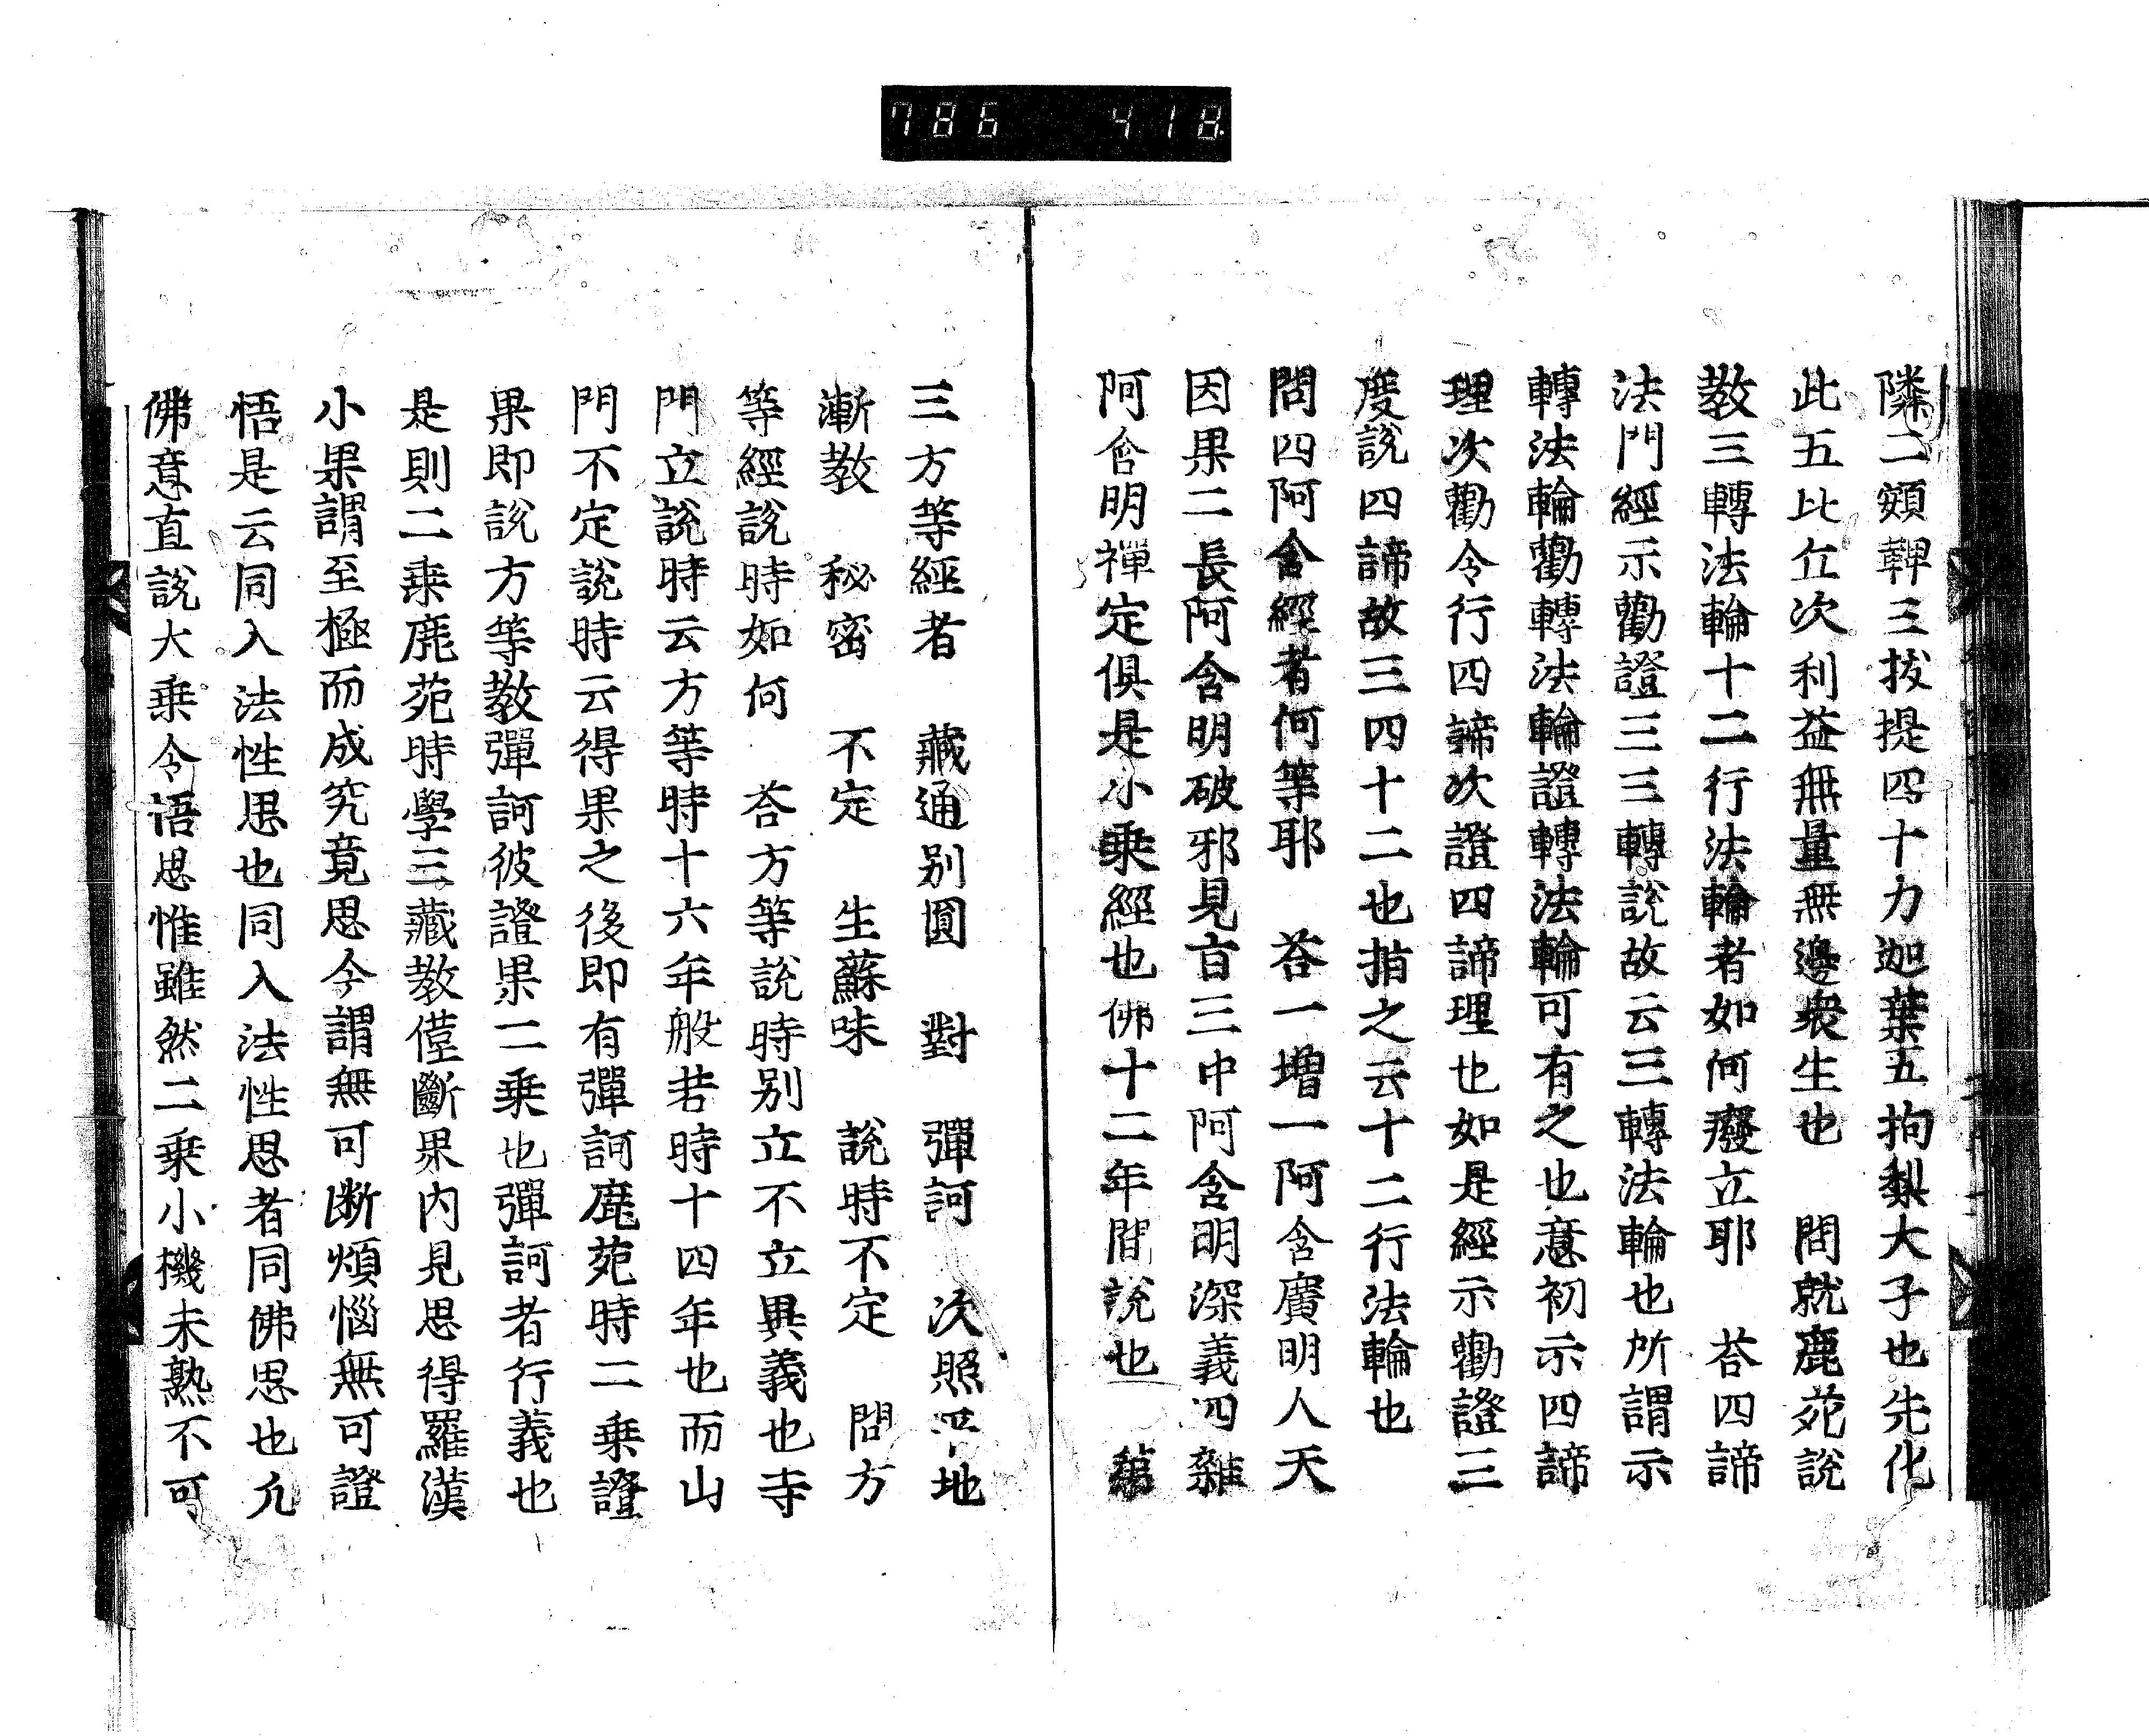 786 418
隣二頞鞞三拔提四十力迦葉五拘梨大子也先化
此五比丘次利益無量無邊衆生也 問就鹿苑說
教三轉法輪十二行法輪者如何癈立耶 荅四諦
法門經示勸證三三轉說故云三轉法輪也所謂示
轉法輪勸轉法輪證轉法輪可有之也意初示四諦
理次勸令行四諦次證四諦理也如是經示勸證三
度說四諦故三四十二也指之云十二行法輪也
問四阿含經者何等耶 荅一增一阿含廣明人天
因果二長阿含明破邪見三中阿含明深義四雜
阿含明禪定俱是小乗經也佛十二年間說也 第
三方等經者 藏通別圓 對 彈訶 次照平地
漸教 秘密 不定 生蘇味 說時不定 問方
等經說時如何 荅方等說時別立不立異義也寺
門立說時云方等時十六年般若時十四年也而山
門不定說時云得果之後即有彈訶鹿苑時二乗證
果即說方等教彈訶彼證果二乗也彈訶者行義也
是則二乗鹿苑時學三藏教僅斷界内見思得羅漢
小果謂至極而成究竟思今謂無可断煩惱無可證
悟是云同入法性思也同入法性思者同佛思也凡
佛意直說大乗令悟思惟雖然二乗小機未熟不可